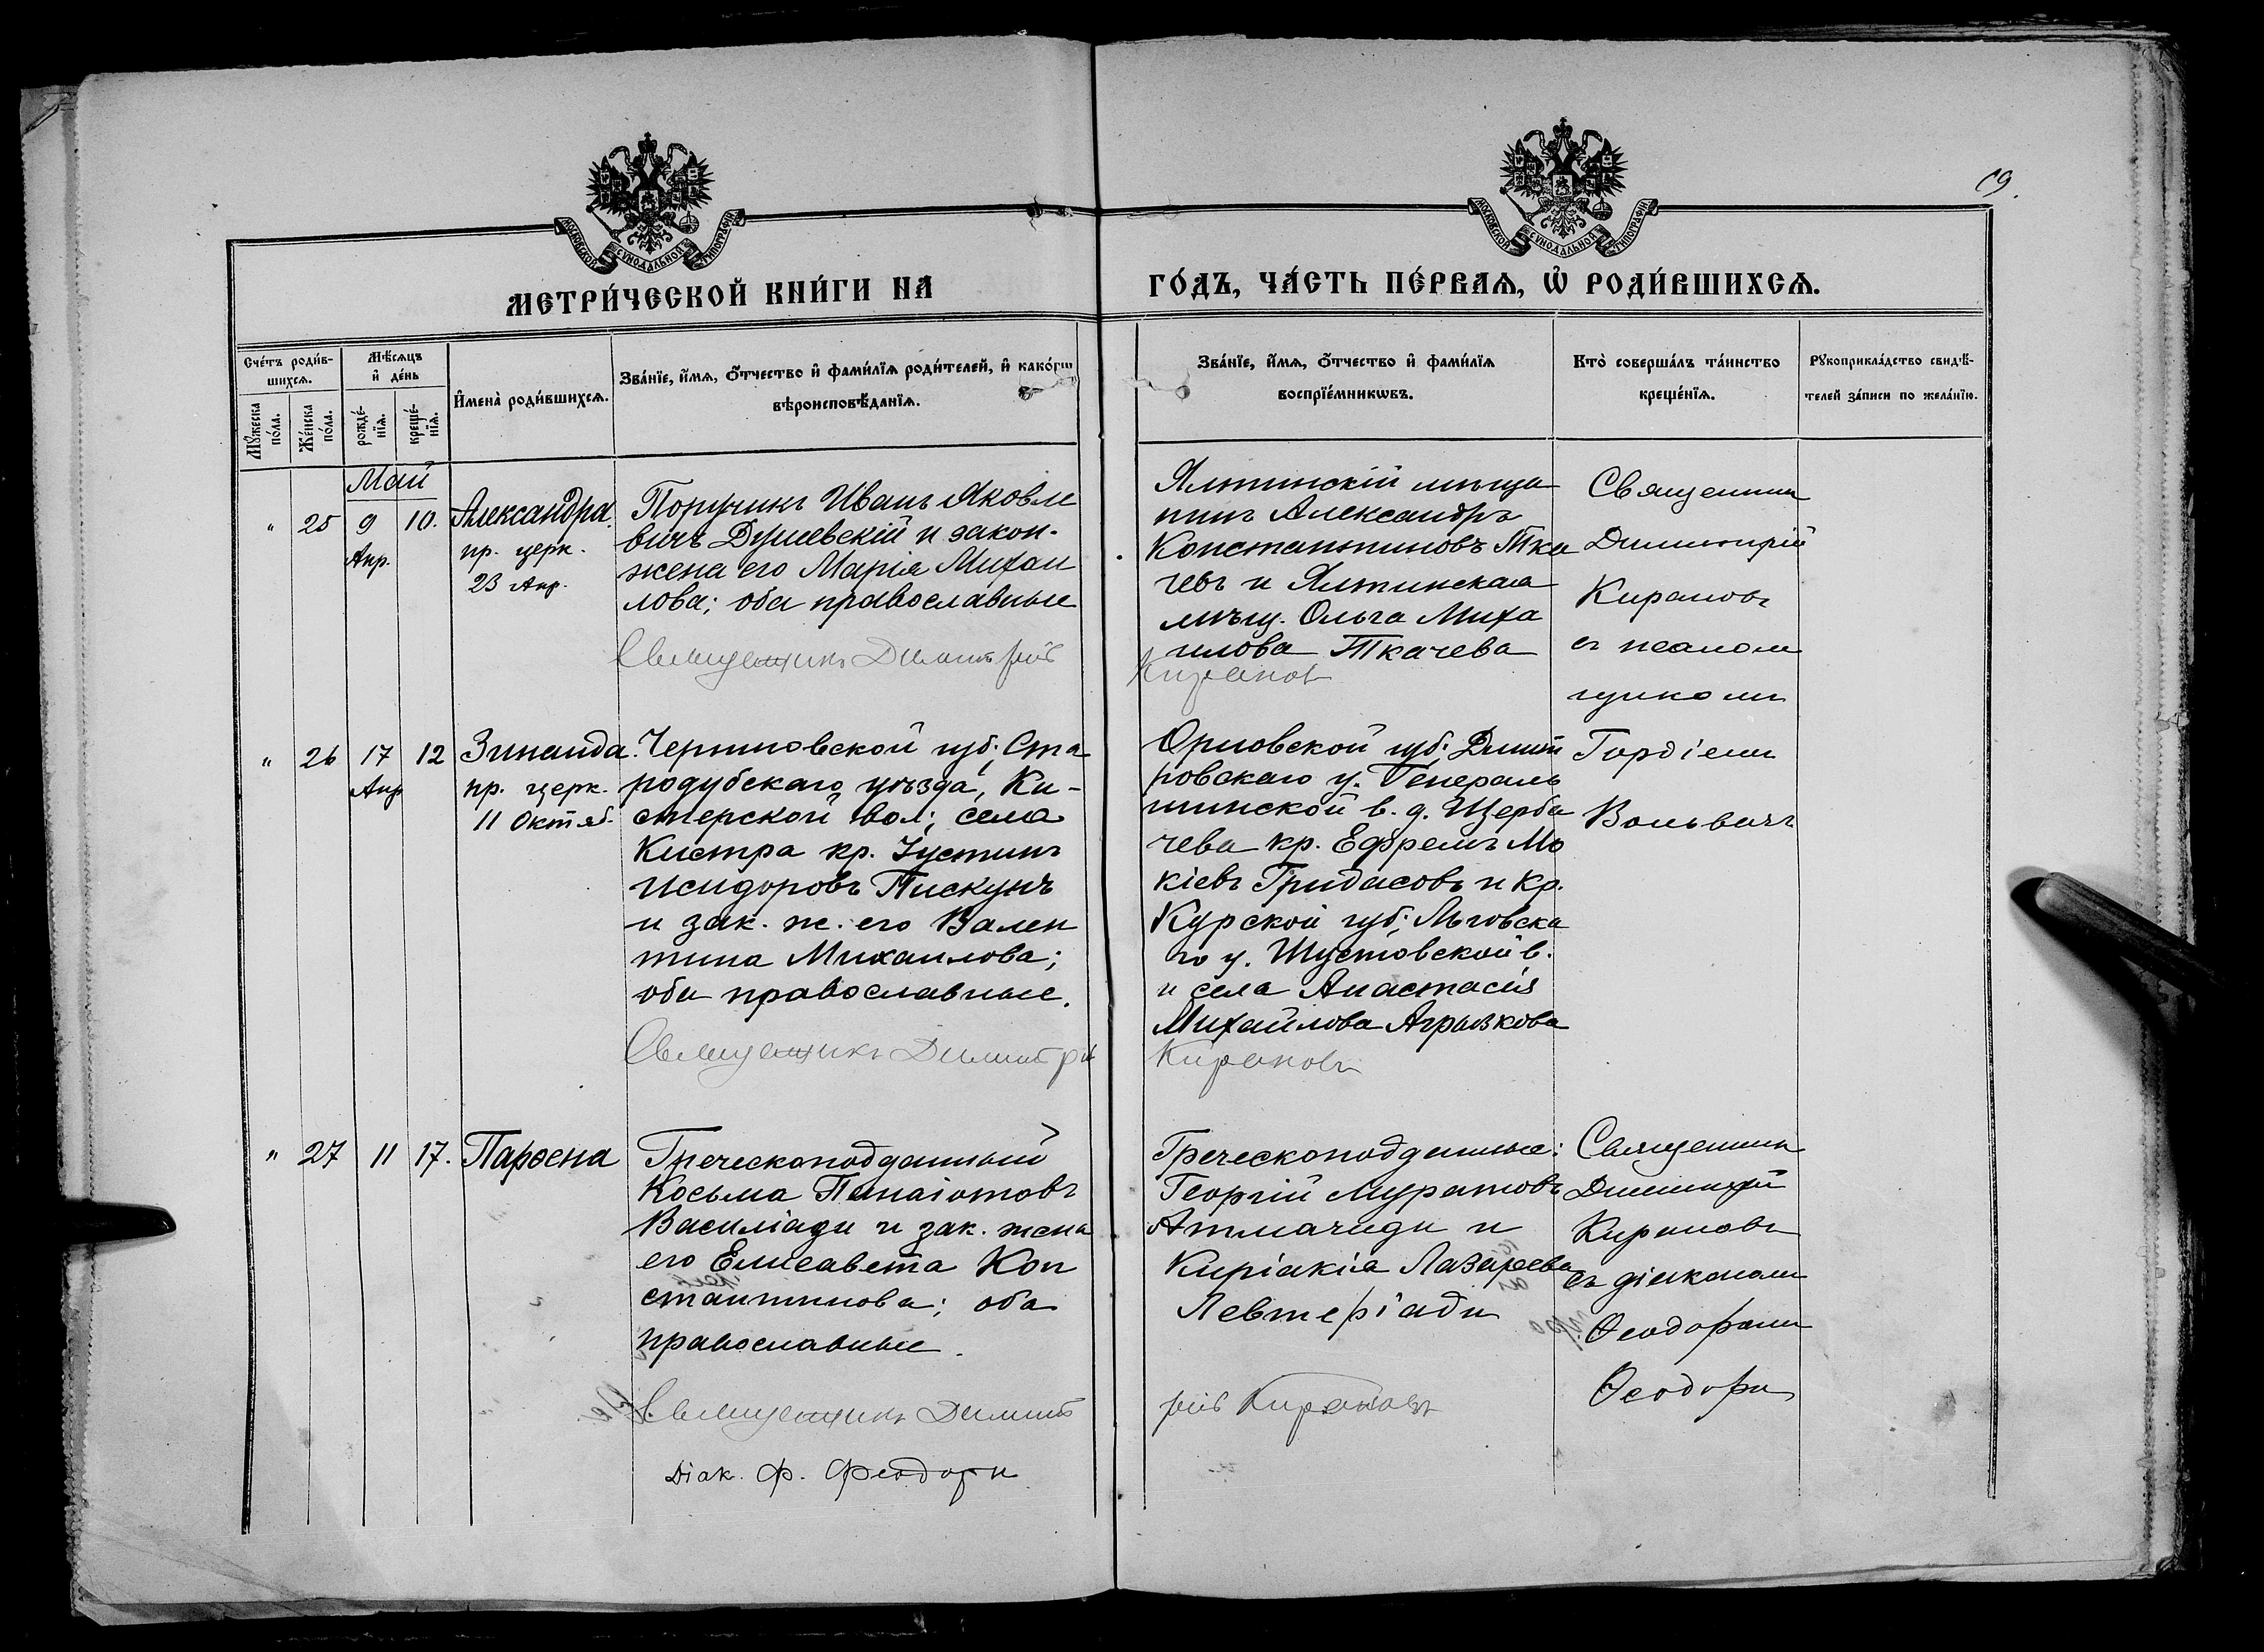 19.
МОСКОВСКОЙ СѴНОДАЛЬНОЙ ТИПОГРАФІИ
МОСКОВСКОЙ СѴНОДАЛЬНОЙ ТИПОГРАФІИ
МЕТРИ́ЧЕСКОЙ КНИ́ГИ НА
ГО́ДЪ, ЧА́СТЬ ПЕ́РВАѦ, Ѡ҆ РОДИ́ВШИХСѦ.
Сче́тъ роди́в-
шихсѧ.
Мꙋ́жеска
по́ла.
Же́нска
по́ла.
Мѣ́сѧцъ
и҆ де́нь
рожде́-
нїѧ.
креще́-
нїѧ.
И҆мена̀ роди́вшихсѧ.
Зва́нїе, и҆́мѧ, ѻ҆́тчество и҆ фами́лїѧ роди́телей, и҆ како́гѡ
вѣроисповѣ́данїѧ.
Зва́нїе, и҆́мѧ, ѻ҆́тчество и҆ фами́лїѧ
воспрїе́мникѡвъ.
Кто̀ соверша́лъ та́инство
креще́нїѧ.
Рꙋкоприкла́дство свидѣ́-
телей за́писи по жела́нїю.
Май
" 25 9 10.
Апр.
Александра.
пр. церк.
23 Апр.
Поручикъ Иванъ Яковле
вичъ Душевскій и закон.
жена его Марія Михаи
лова; оба православные
Священникъ Димитрій
Ялтинскій мѣща
нинъ Александръ
Константиновъ Тка
чевъ и Ялтинская
мѣщ. Ольга Миха
илова Ткачева
Кирановъ
Священник
Димитрій
Кирановъ
съ псалом
щикомъ
Гордіемъ
" 26 17 12
Апр
Зинаида.
пр. церк.
11 Октяб.
Черниговской губ; Ста
родубскаго уѣзда, Ки-
стерской вол; села
Кистра кр. Іустинъ
Исидоровъ Пискунъ
и зак. ж. его Вален
тина Михаилова;
оба православные.
Священникъ Димитрій
Орловской губ; Дмит
ровскаго у. Генераль
шинской в. д. Щерба
чева кр. Ефремъ Мо
кіевъ Гридасовъ и кр.
Курской губ; Льговска
го у. Шустовской в.
и села Анастасія
Михайлова Агрызкова
Кирановъ
" 27 11 17.
Парѳена
Греческоподданный
Косьма Панаіотовъ
Василіади и зак. жена
его Елисавета Кон
стантинова; оба
православные.
Священникъ Димит
Діак. Ф. Феодори
Греческоподданные:
Георгій Муратовъ
Атмачиди и
Киріакія Лазарева
Левтеріади
рій Кирановъ
Священникъ
Димитрій
Кирановъ
съ діакономъ
Ѳеодоромъ
Ѳеодори